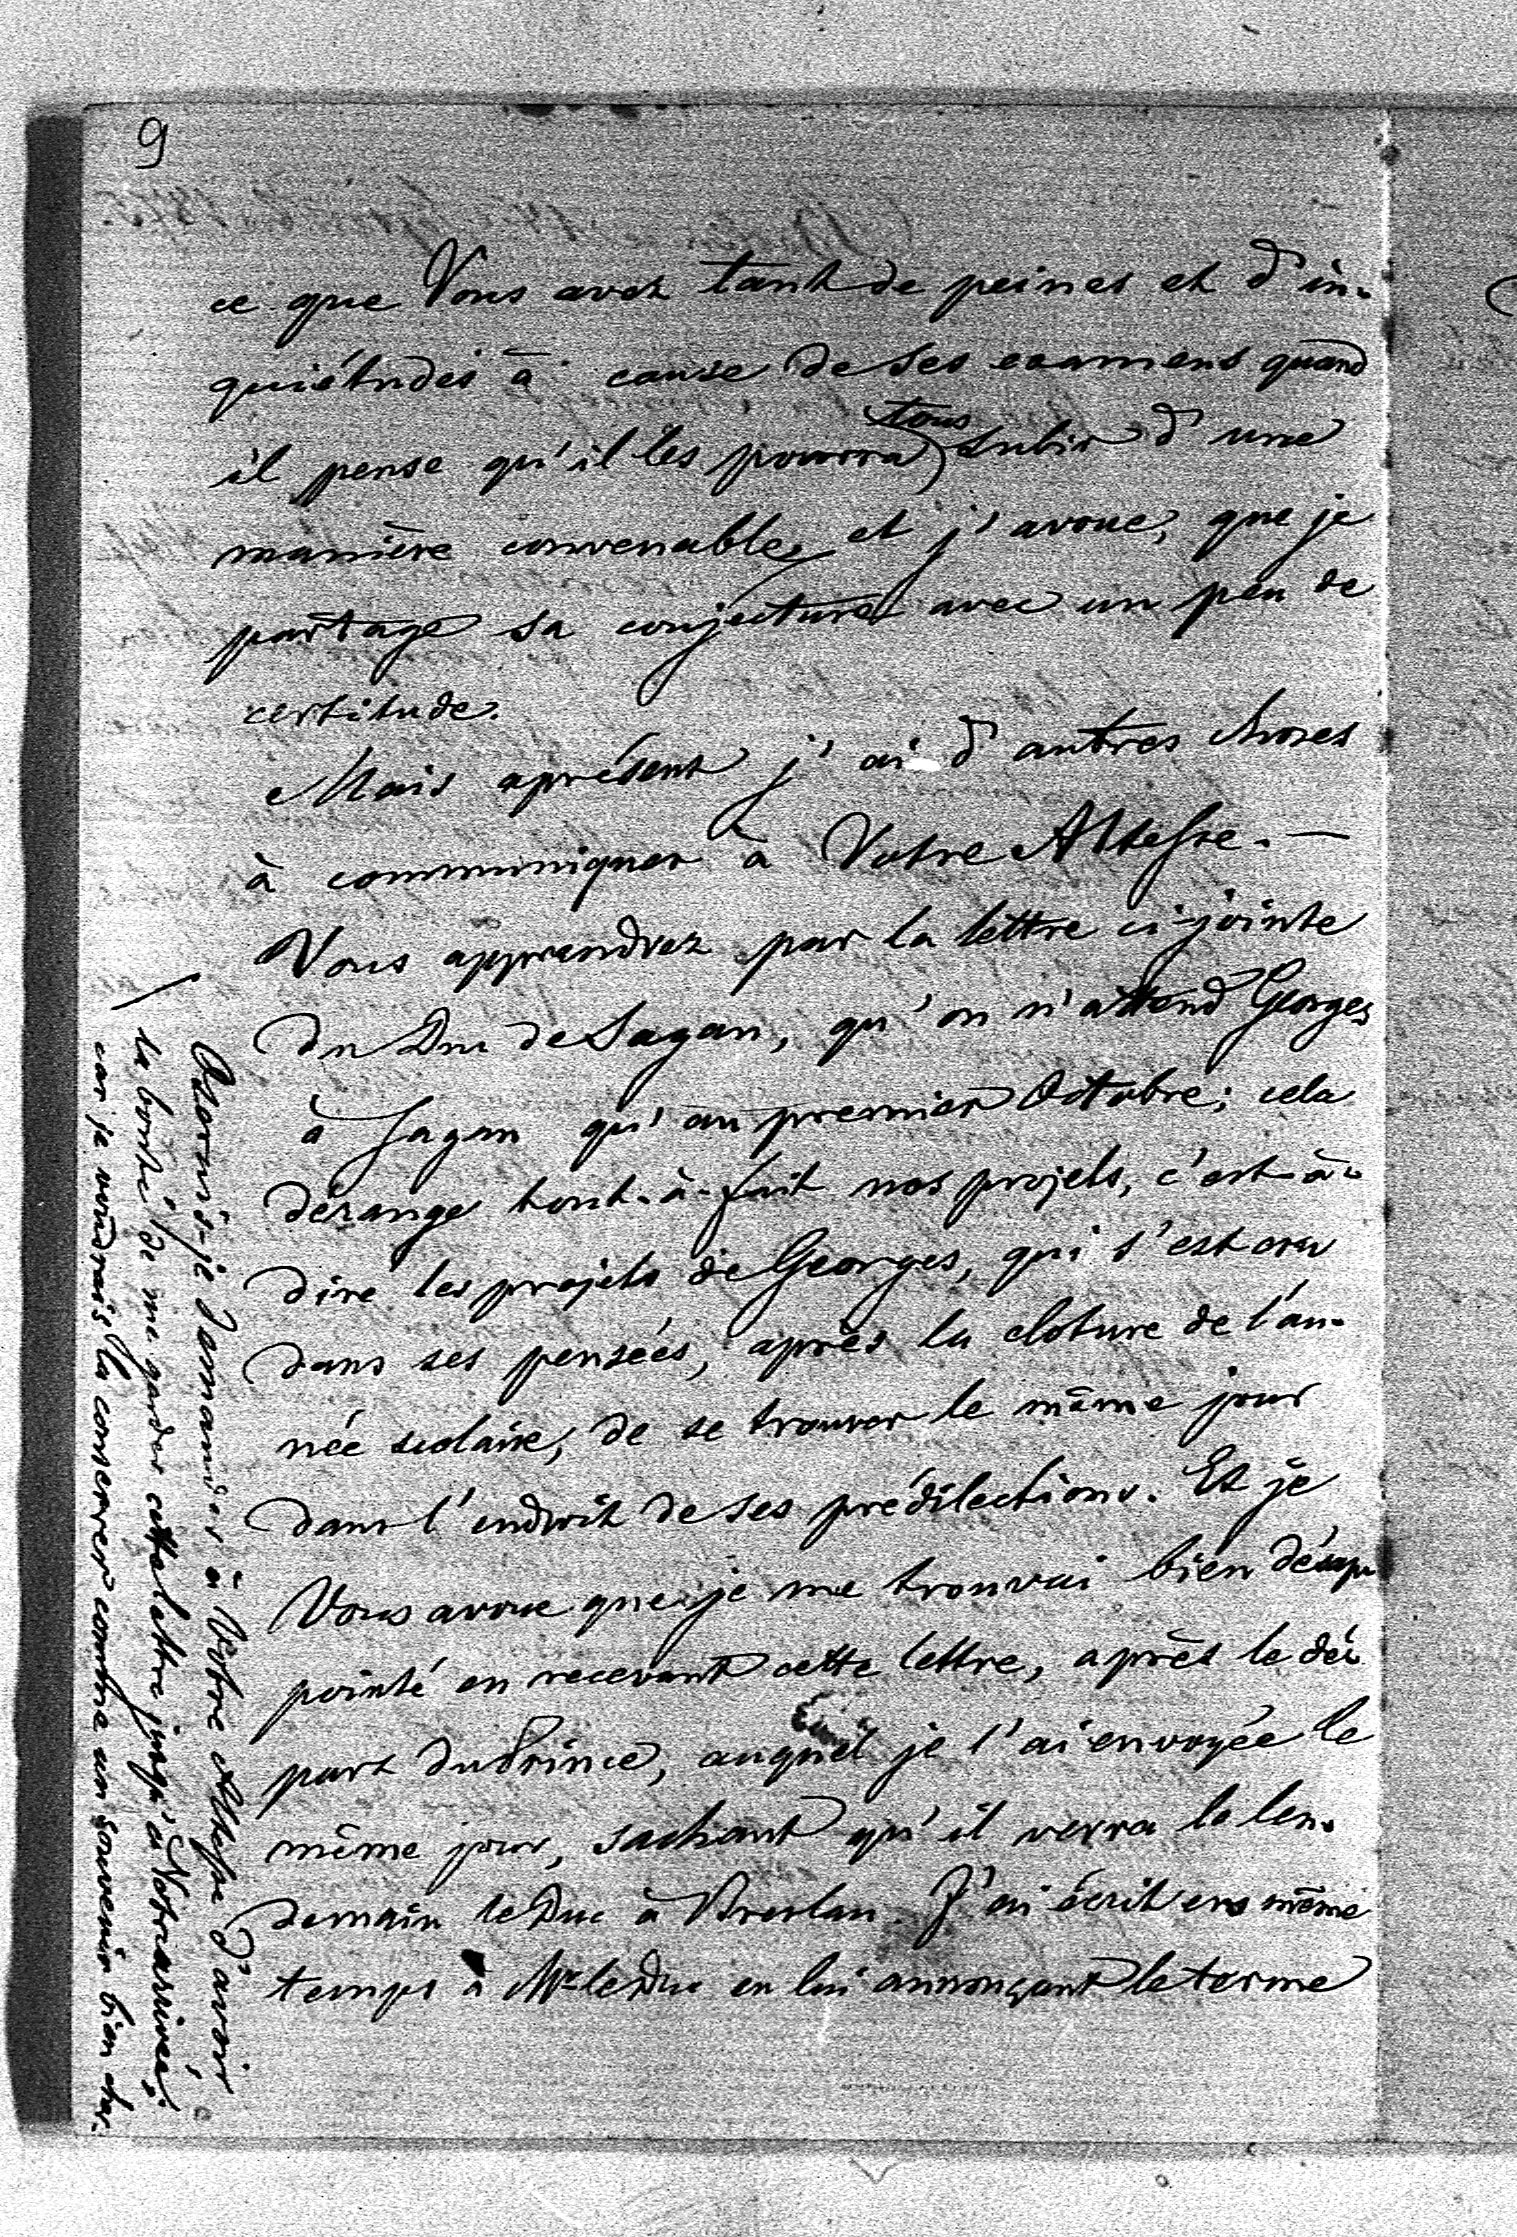 9
ce que Vous avez tant de peines et d'in-
quiétudes à cause de ses examens quand
il pense qu'il les pourra tous subir d'une
manière convenable, et j'avoue, que je
partage sa conjecture avec un peu de
certitude.
Mais aprésent j'ai d'autres choses
à communiquer à Votre Altesse. —
Vous apprendrez par la lettre ci-jointe
du Duc de Sagan, qu'on n'attend Georges
à Sagan qu'au premier Octobre; cela
dérange tout-à-fait nos projets, c'est-à-
dire les projets de Georges, qui s'est cru
dans ses pensées, après la cloture de l'an-
née scolaire, de se trouver le même jour
dans l'endroit de ses prédilections. Et je
Vous avoue que je me trouvai bien désap-
pointé en recevant cette lettre, après le dé-
part du Prince, auquel je l'ai envoyée le
même jour, sachant qu'il verra le len-
demain le Duc à Breslau. J'ai écrit en même
temps à Mr le Duc en lui annonçant le terme
Oserais-je demander à Votre Altesse d'avoir
la bonté de me garder cette lettre jusqu'à Notre arrivée,
car je voudrais la conserver comme un souvenir bien cher.